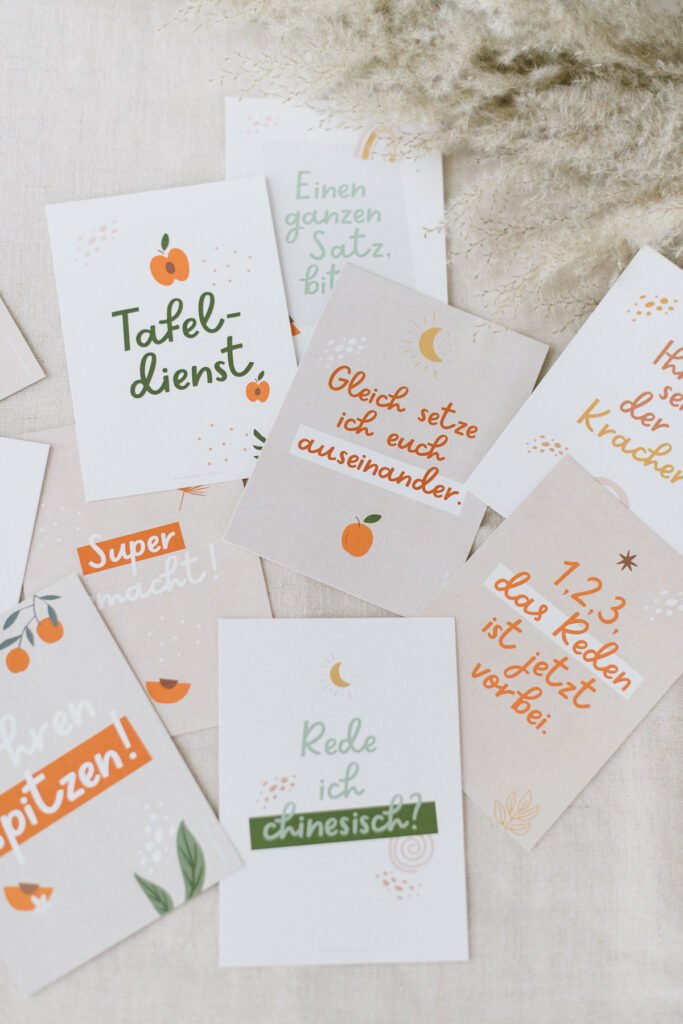 Einen
ganzen
Satz,
bit
Tafel-
dienst
Gleich setze
ich euch
auseinander.
Ihr
der
Kracher
Super
macht!
1, 2, 3,
das Reden
ist jetzt
vorbei.
hren
spitzen!
Rede
ich
chinesisch?